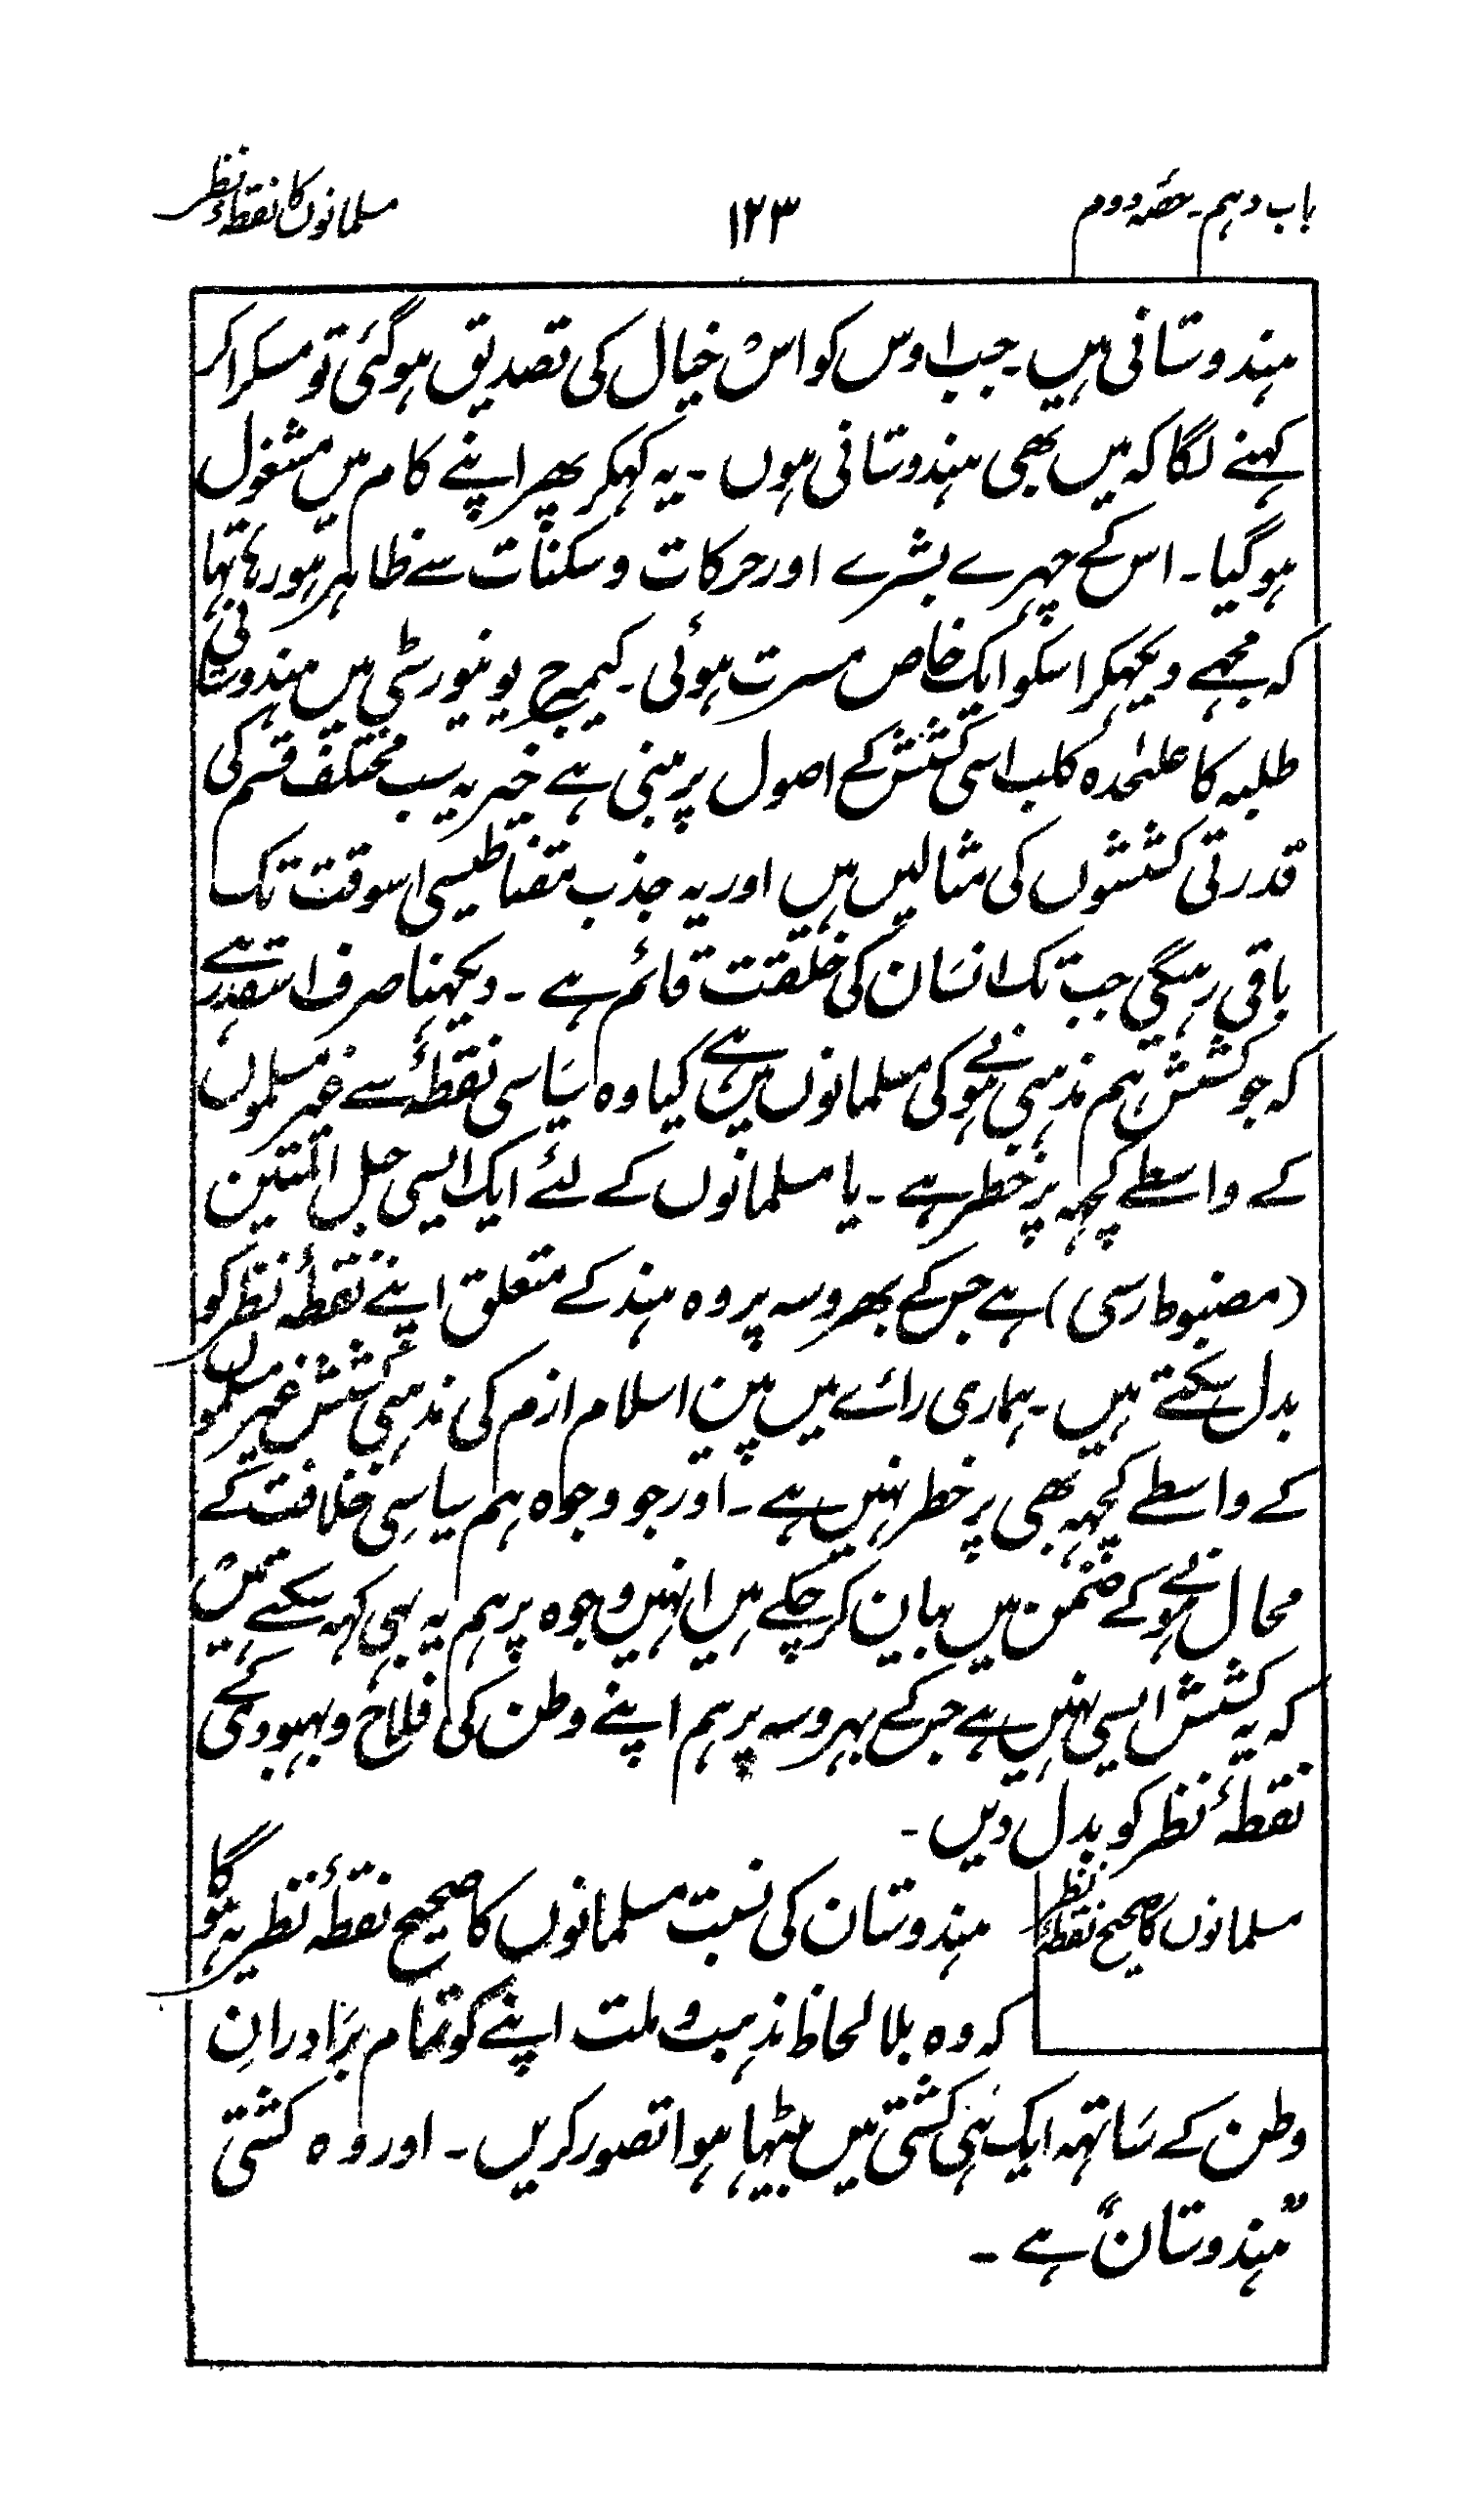 باب دہم۔ حصّہ دوم
۱۲۳
مسلمانوں کا نقطۂ نظر
ہندوستانی ہیں۔ جب اوس کو اس خیال کی تصدیق ہوگئی تو مسکرا کر
کہنے لگا کہ میں بھی ہندوستانی ہوں۔ یہ کہکر پھر اپنے کام میں مشغول
ہوگیا۔ اس کے چہرے بشرے اور حرکات و سکنات سے ظاہر ہو رہا تہا
کہ مجہے دیکہکر اسکو ایک خاص مسرت ہوئی۔ کیمبرج یونیورسٹی میں ہندوستانی
طلبہ کا علٰحدہ کلب اسی کشش کے اصول پر مبنی ہے خیر یہ سب مختلف قسم کی
قدرتی کششوں کی مثالیں ہیں اور یہ جذب مقناطیسی اسوقت تک
باقی رہیگی جب تک انسان کی خلقت قائم ہے۔ دیکہنا صرف اسقدر ہے
کہ جو کشش ہم مذہبی ہونے کی مسلمانوں میں ہے کیا وہ سیاسی نقطۂ سے غیر مسلموں
کے واسطے کچہہ پر خطر ہے۔ یا مسلمانوں کے لئے ایک ایسی حبل المتین
(مضبوط رسی) ہے جس کے بھروسہ پر وہ ہند کے متعلق اپنے نقطۂ نظر کو
بدل سکتے ہیں۔ ہماری رائے میں پین اسلام ازم کی مذہبی کشش غیر مسلموں
کے واسطے کچہہ بھی پر خطر نہیں ہے۔ اور جو وجوہ ہم سیاسی خلافت کے
محال ہونے کے ضمن میں بیان کرچکے ہیں انہیں وجوہ پر ہم یہ بہی کہہ سکتے ہیں
کہ یہ کشش ایسی نہیں ہے جس کے بہروسہ پر ہم اپنے وطن کی فلاح و بہبودگی کے
نقطۂ نظر کو بدل دیں۔
مسلمانوں کا صحیح نقطۂ نظر
ہندوستان کی نسبت مسلمانوں کا صحیح نقطۂ نظر یہ ہوگا
کہ وہ بلا لحاظ مذہب و ملت اپنے کو تمام برادرانِ
وطن کے ساتہہ ایک ہی کشتی میں بیٹہا ہوا تصور کریں۔ اور وہ کشتی
”ہندوستان“ ہے۔